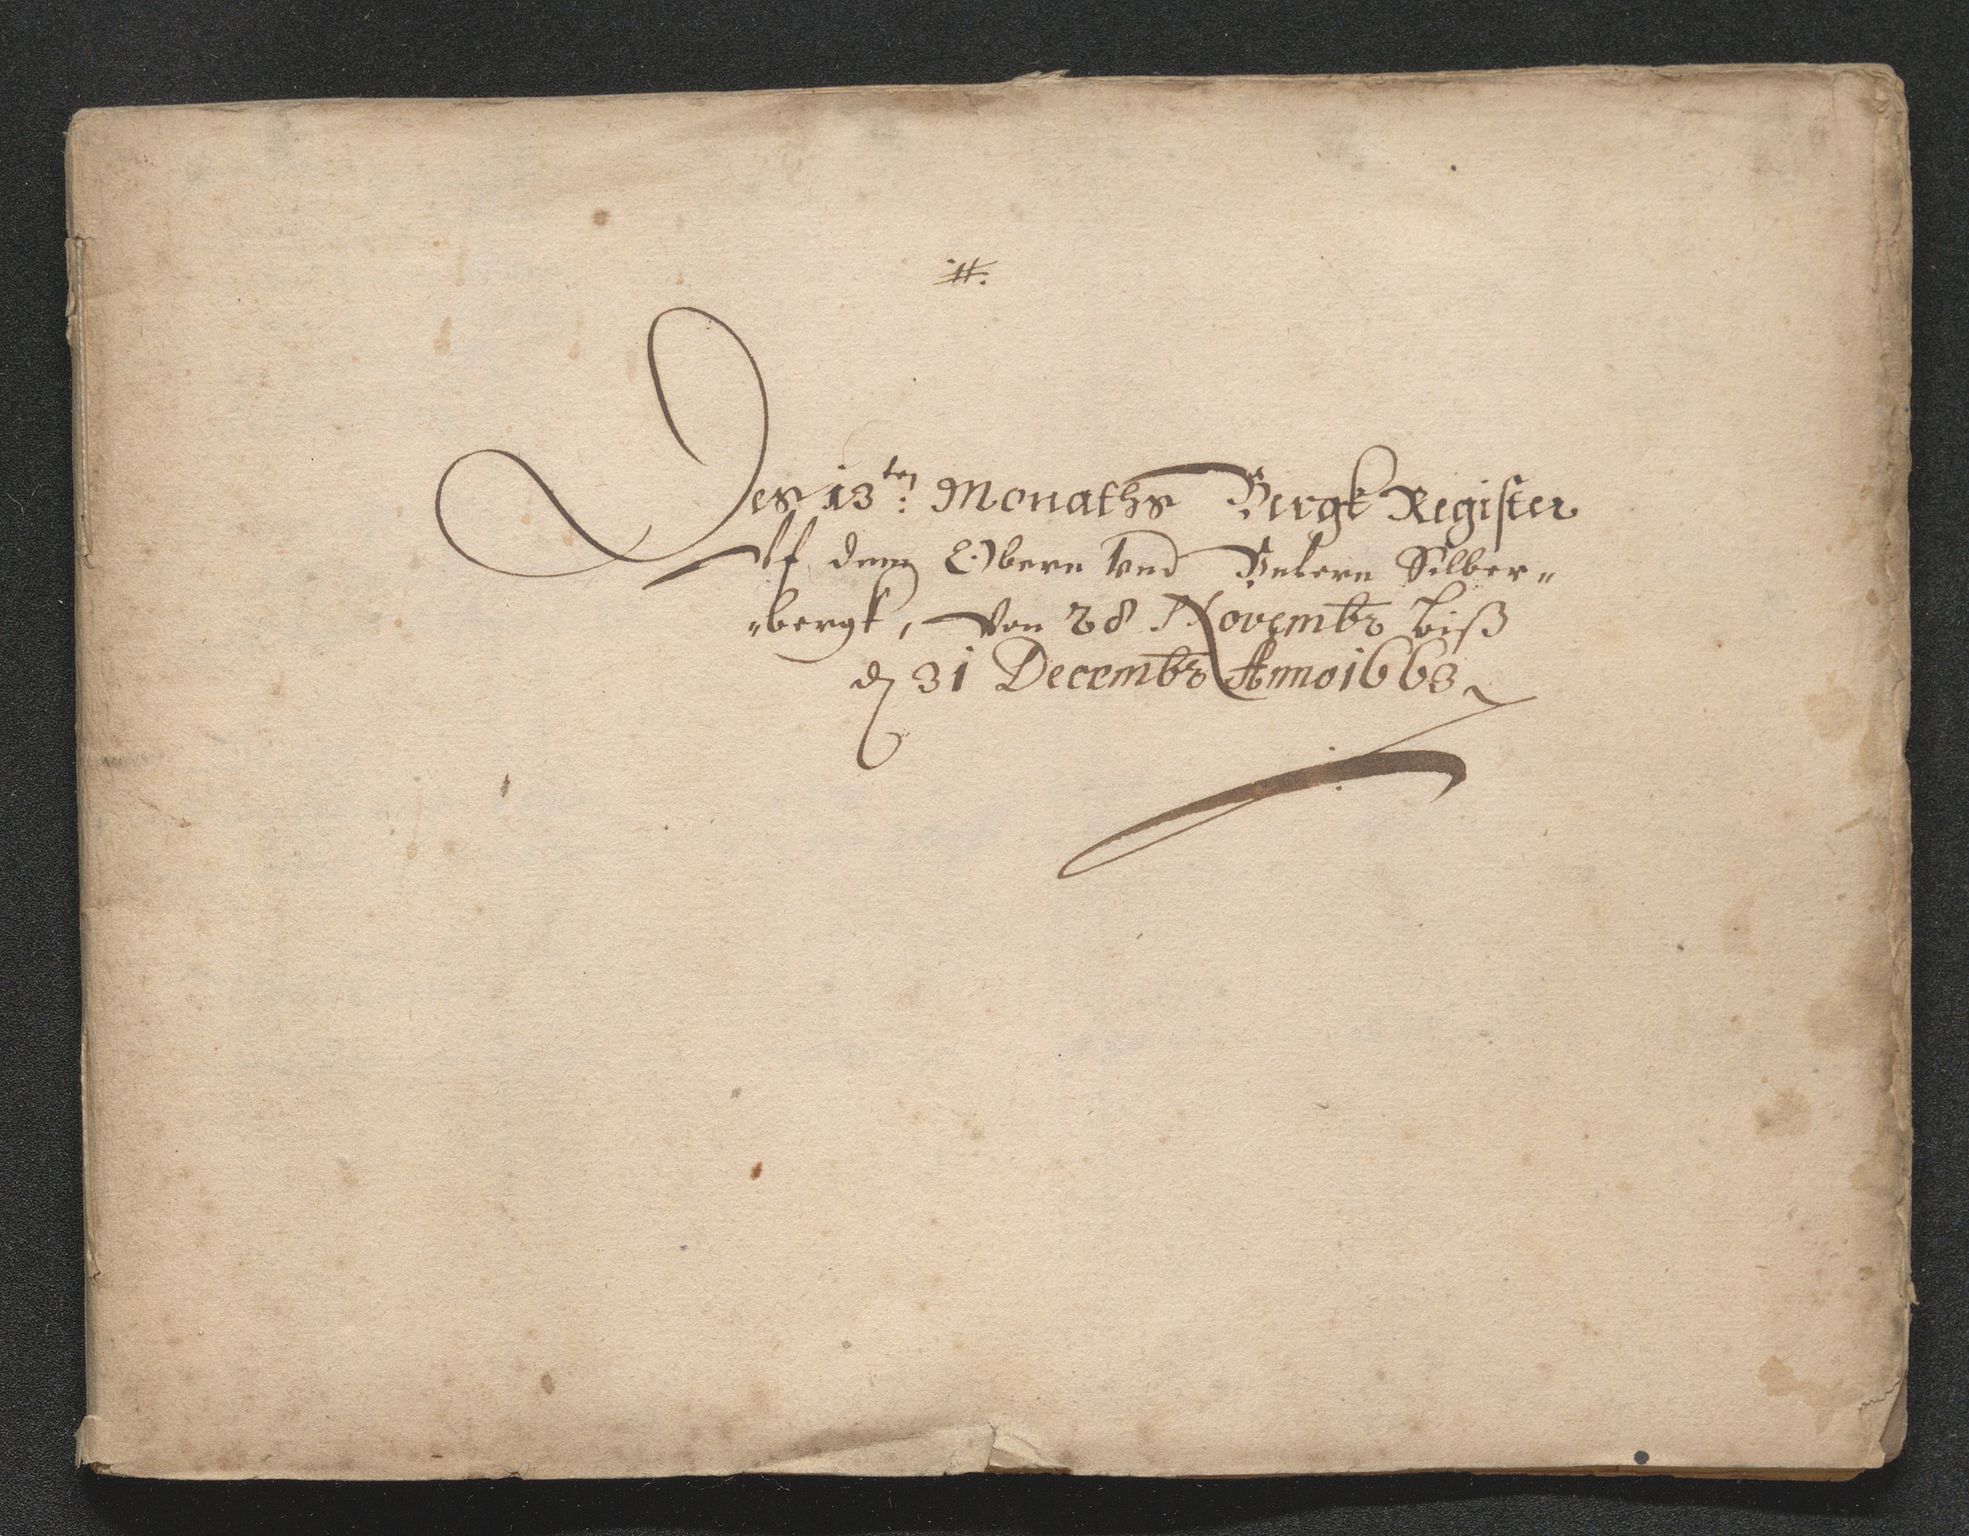 #.
Des 13ten: Monaths Bergk Register
Vf dem Obern vnd Vntern Silber-
-bergk, Von 28 Novembr biß
d 31 Decembr Anno 1663